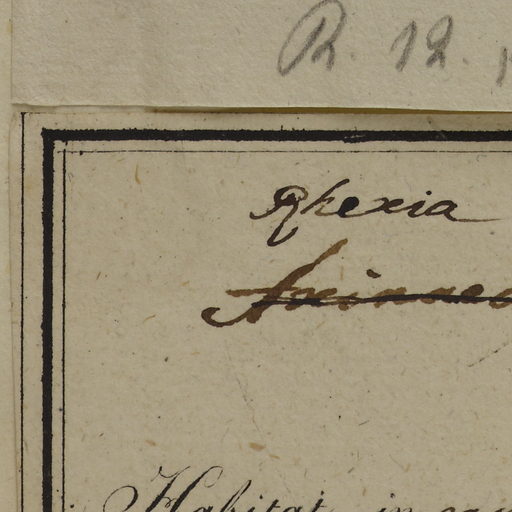 R. 12.
Rhexia
Habitat in